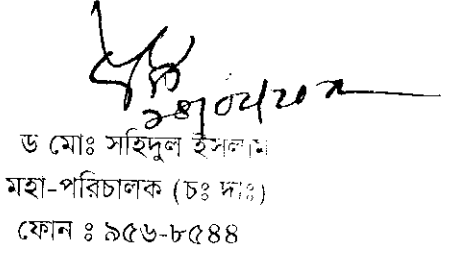 ড মোঃ সহিদুল ইসলাম
মহা-পরিচালক (চঃ দাঃ)
ফোন ঃ ৯৫৬-৮৫৪৪